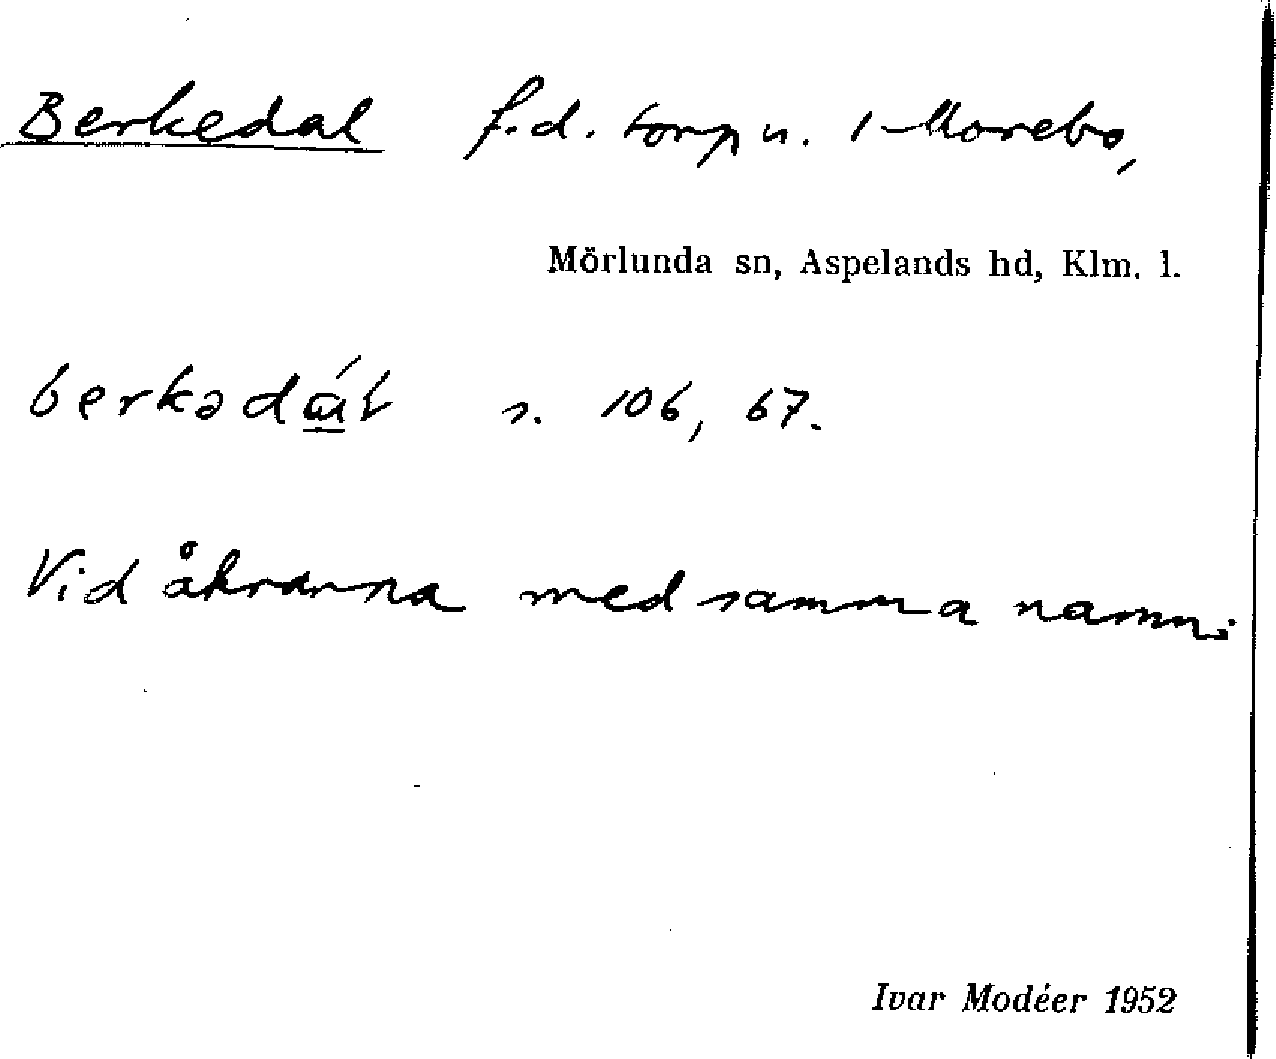 Berkedal f.d. torp u. 1 Morebo,
Mörlunda sn, Aspelands hd, Klm. l.
berkədát s. 106, 67.
Vid åkrarna med samma namn.
Ivar Modéer 1952